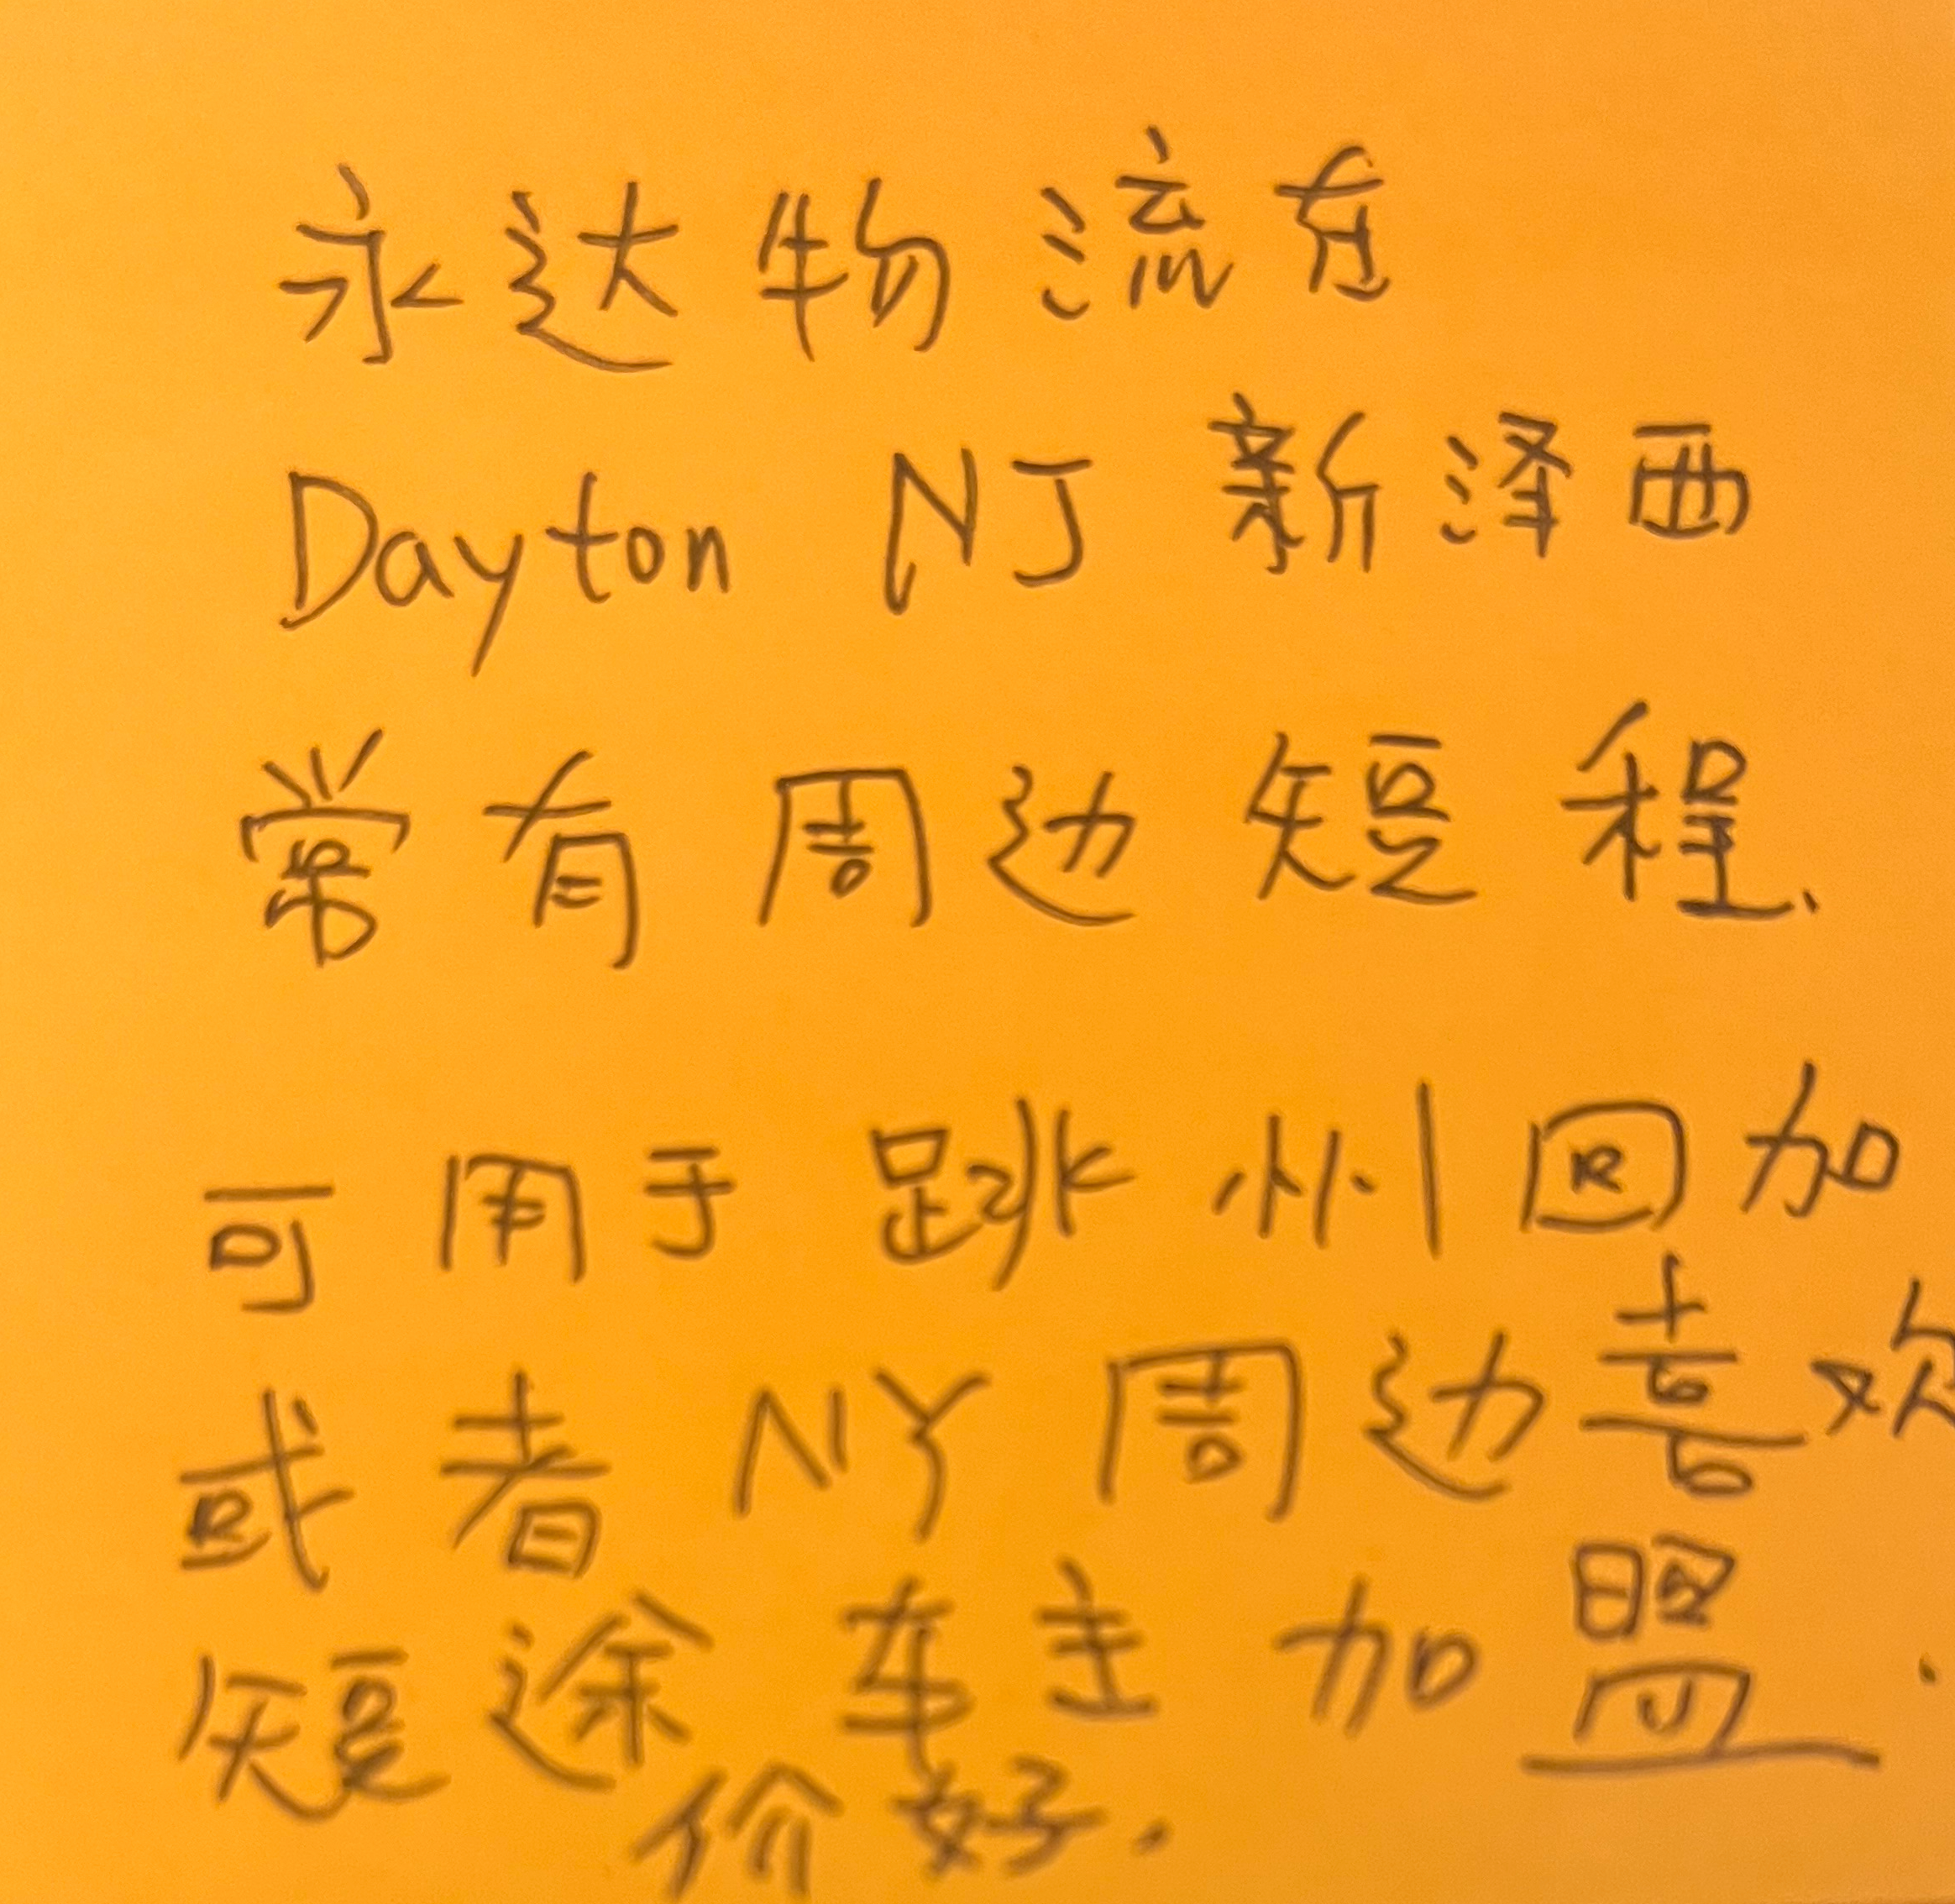 永达物流在
Dayton NJ 新泽西
常有周边短程、
可用于跳州回加
或者NY周边喜欢
短途车主加盟.
价好.